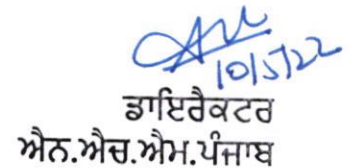 10/5/22
ਡਾਇਰੈਕਟਰ
ਐਨ.ਐਚ.ਐਮ.ਪੰਜਾਬ